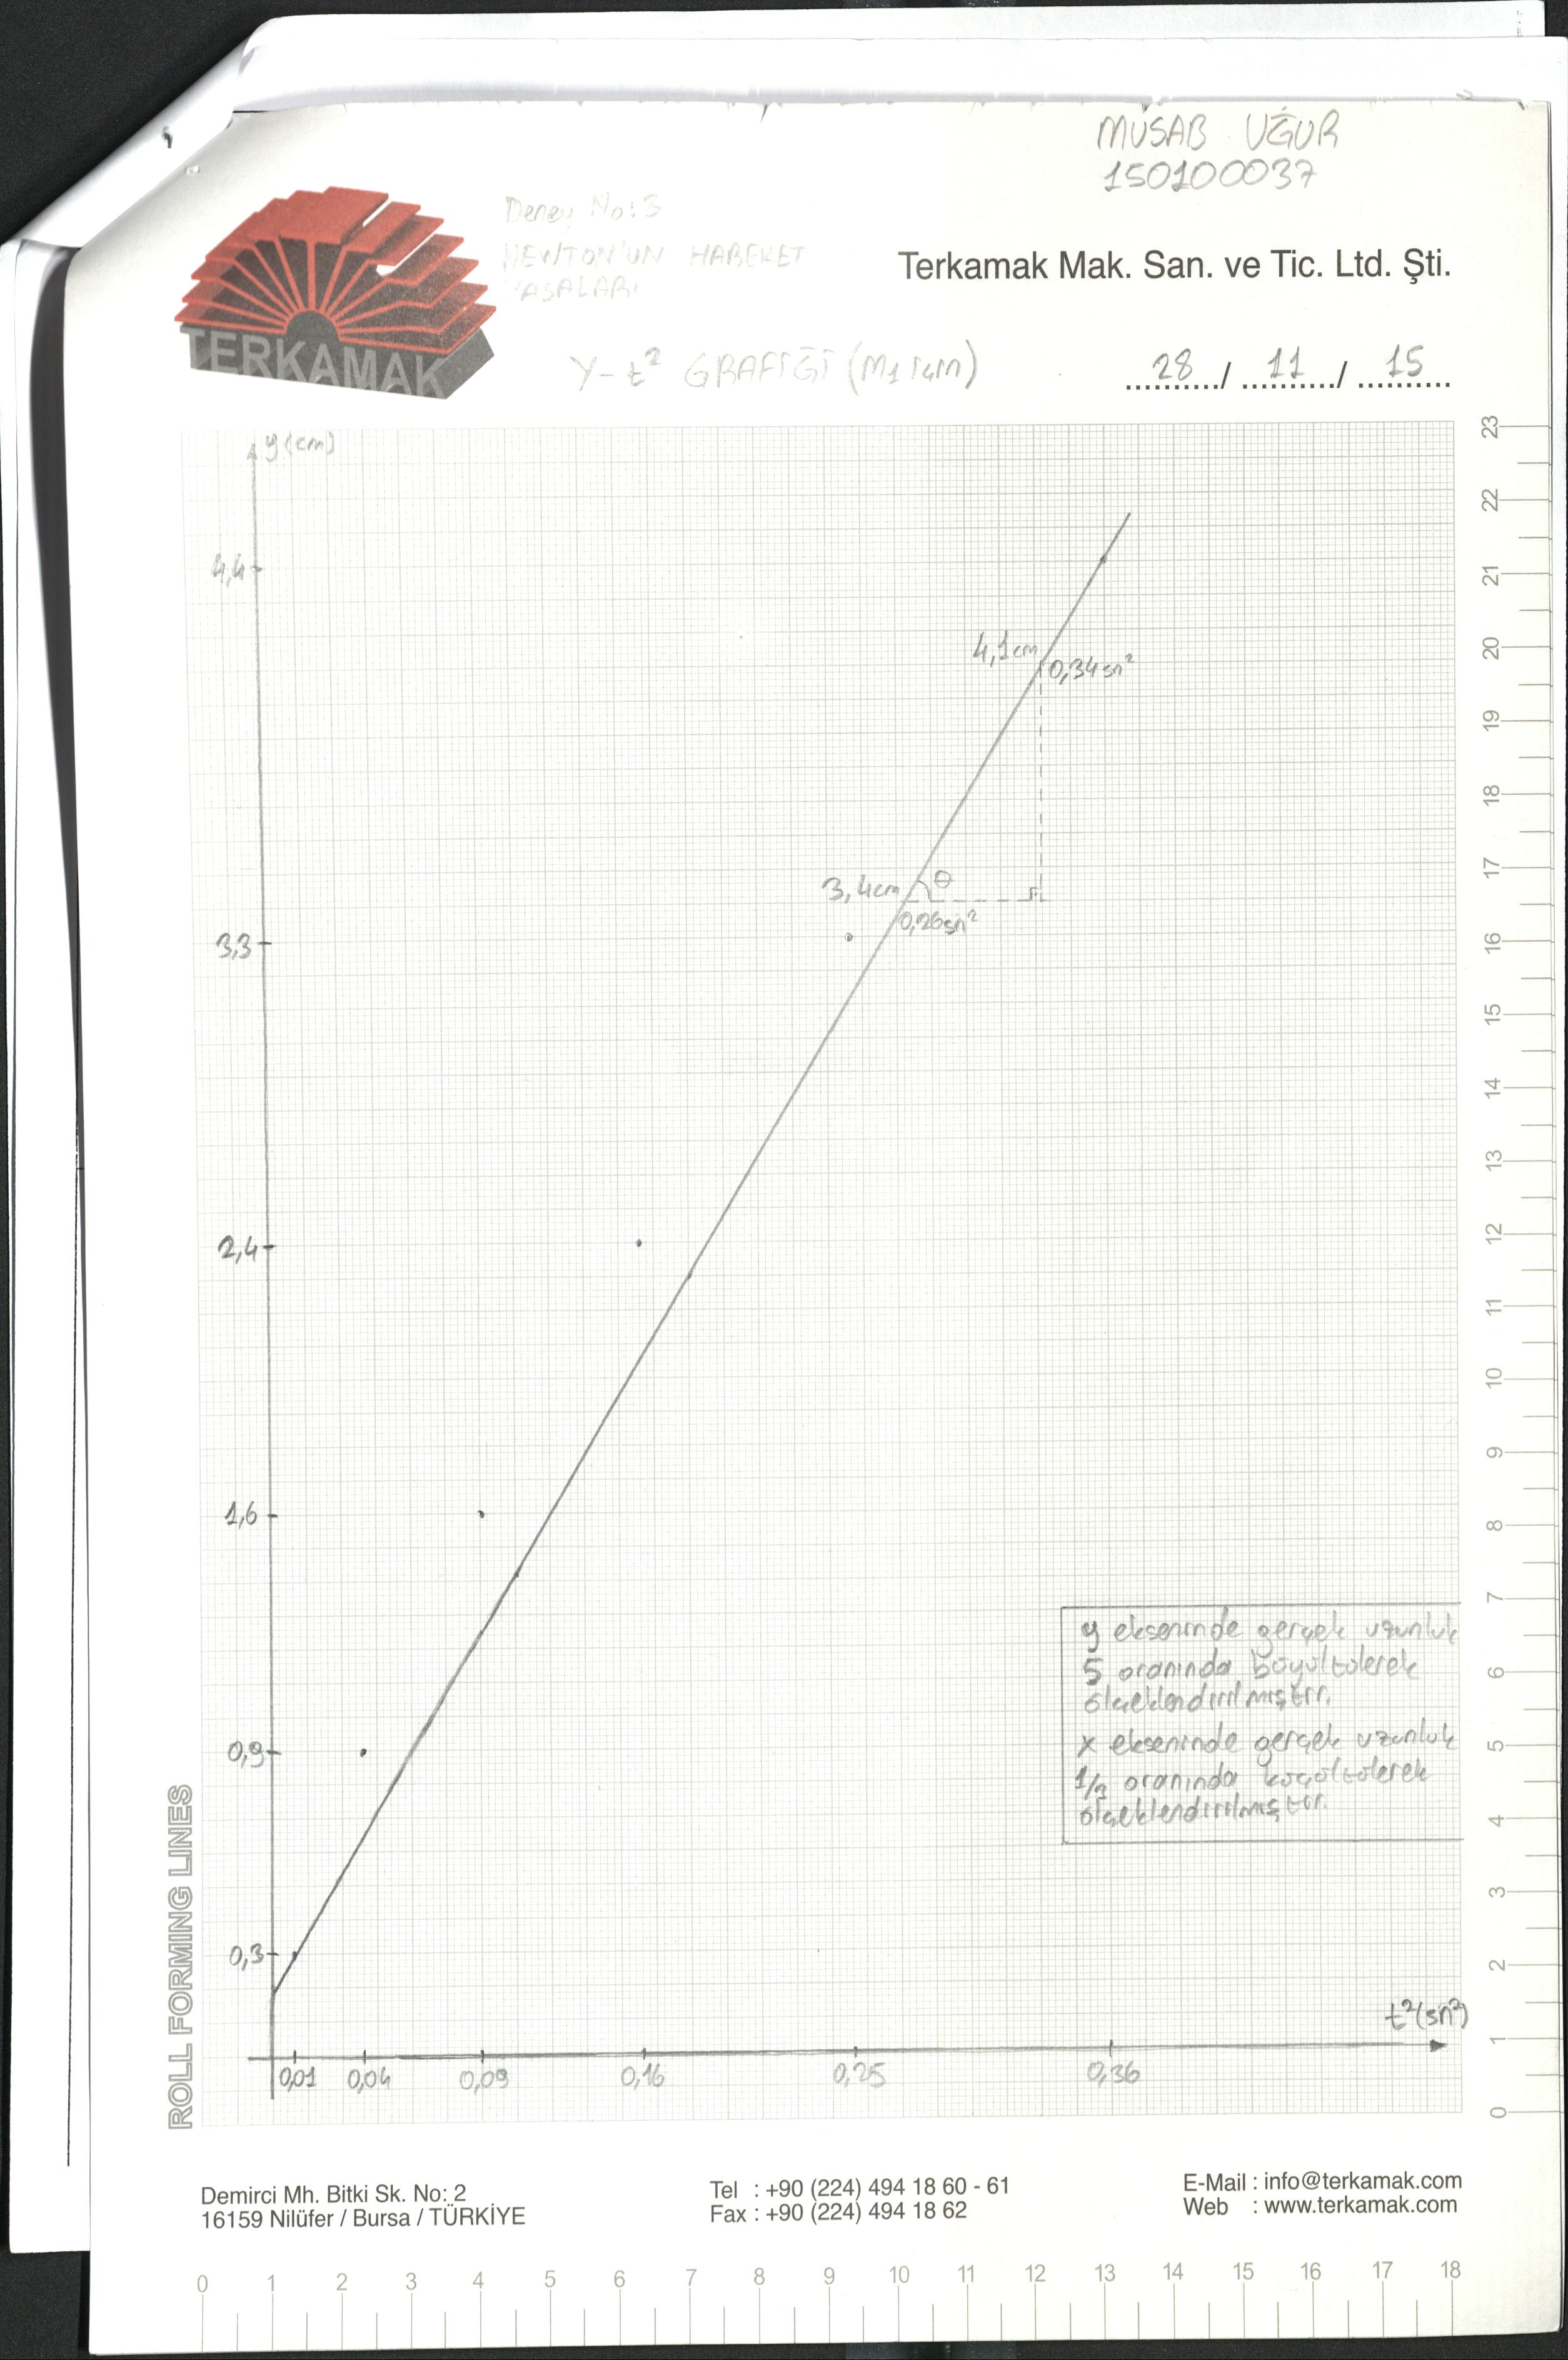 MUSAB UĞUR
150100037
Deney No:3
NEWTON'UN HAREKET
YASALARI
Terkamak Mak. San. ve Tic. Ltd. Şti.
TERKAMAK
Y-t² GRAFİĞİ (M1 için)
28 / 11 / 15
y(cm)
4,4
4,1cm
0,34sn²
3,4cm
θ
0,26sn²
3,3
2,4
1,6
y ekseninde gerçek uzunluk
5 oranında büyültülerek
ölçeklendirilmiştir.
x ekseninde gerçek uzunluk
oranında küçültülerek
ölçeklendirilmiştir.
0,9
0,3
t²(sn²)
0,01 0,04 0,09 0,16 0,25 0,36
ROLL FORMING LINES
23
22
21
20
19
18
17
16
15
14
13
12
11
10
9
8
7
6
5
4
3
2
1
0
Demirci Mh. Bitki Sk. No: 2
16159 Nilüfer / Bursa / TÜRKİYE
Tel : +90 (224) 494 18 60 - 61
Fax : +90 (224) 494 18 62
E-Mail : info@terkamak.com
Web : www.terkamak.com
0 1 2 3 4 5 6 7 8 9 10 11 12 13 14 15 16 17 18